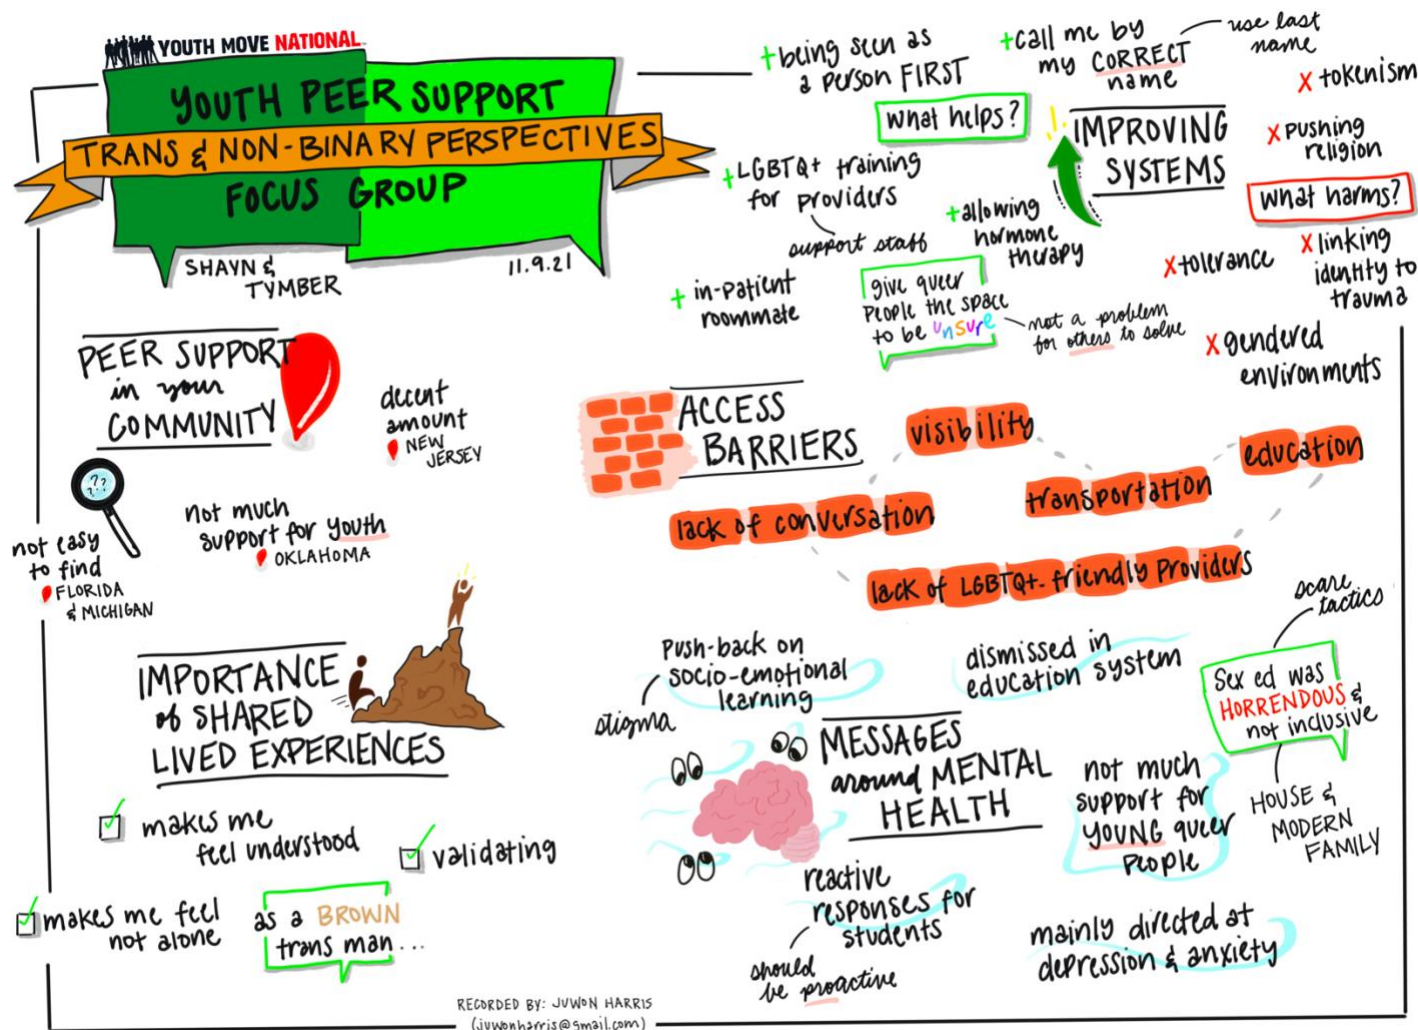 YOUTH MOVE NATIONAL
YOUTH PEER SUPPORT
TRANS & NON-BINARY PERSPECTIVES
FOCUS GROUP
SHAYN &
TYMBER
11.9.21
+ being seen as
a person FIRST
+ call me by
my CORRECT
name
use last
name
What helps?
+ LGBTQ+ training
for providers
support staff
+ allowing
hormone
therapy
+ in-patient
roommate
give queer
People the space
to be unsure
not a problem
for others to solve
IMPROVING
SYSTEMS
x tokenism
x pushing
religion
What harms?
x tolerance
x linking
identity to
trauma
x gendered
environments
PEER SUPPORT
in your
COMMUNITY
decent
amount
NEW
JERSEY
??
not much
support for youth
OKLAHOMA
not easy
to find
FLORIDA
& MICHIGAN
ACCESS
BARRIERS
visibility
education
transportation
lack of conversation
lack of LGBTQ+-friendly Providers
IMPORTANCE
of SHARED
LIVED EXPERIENCES
makes me
feel understood
validating
makes me feel
not alone
as a BROWN
trans man...
Push-back on
socio-emotional
learning
stigma
dismissed in
education system
scare
tactics
Sex ed was
HORRENDOUS &
not inclusive
HOUSE &
MODERN
FAMILY
MESSAGES
around MENTAL
HEALTH
not much
support for
YOUNG queer
People
reactive
responses for
students
should
be proactive
mainly directed at
depression & anxiety
RECORDED BY: JUWON HARRIS
(juwonharris@gmail.com)